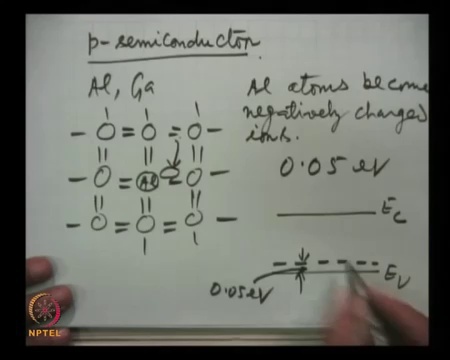 p-semiconductor
Al, Ga
Al
Al atoms become
negatively charged
ions.
0.05 eV
Ec
Ev
0.05eV
NPTEL